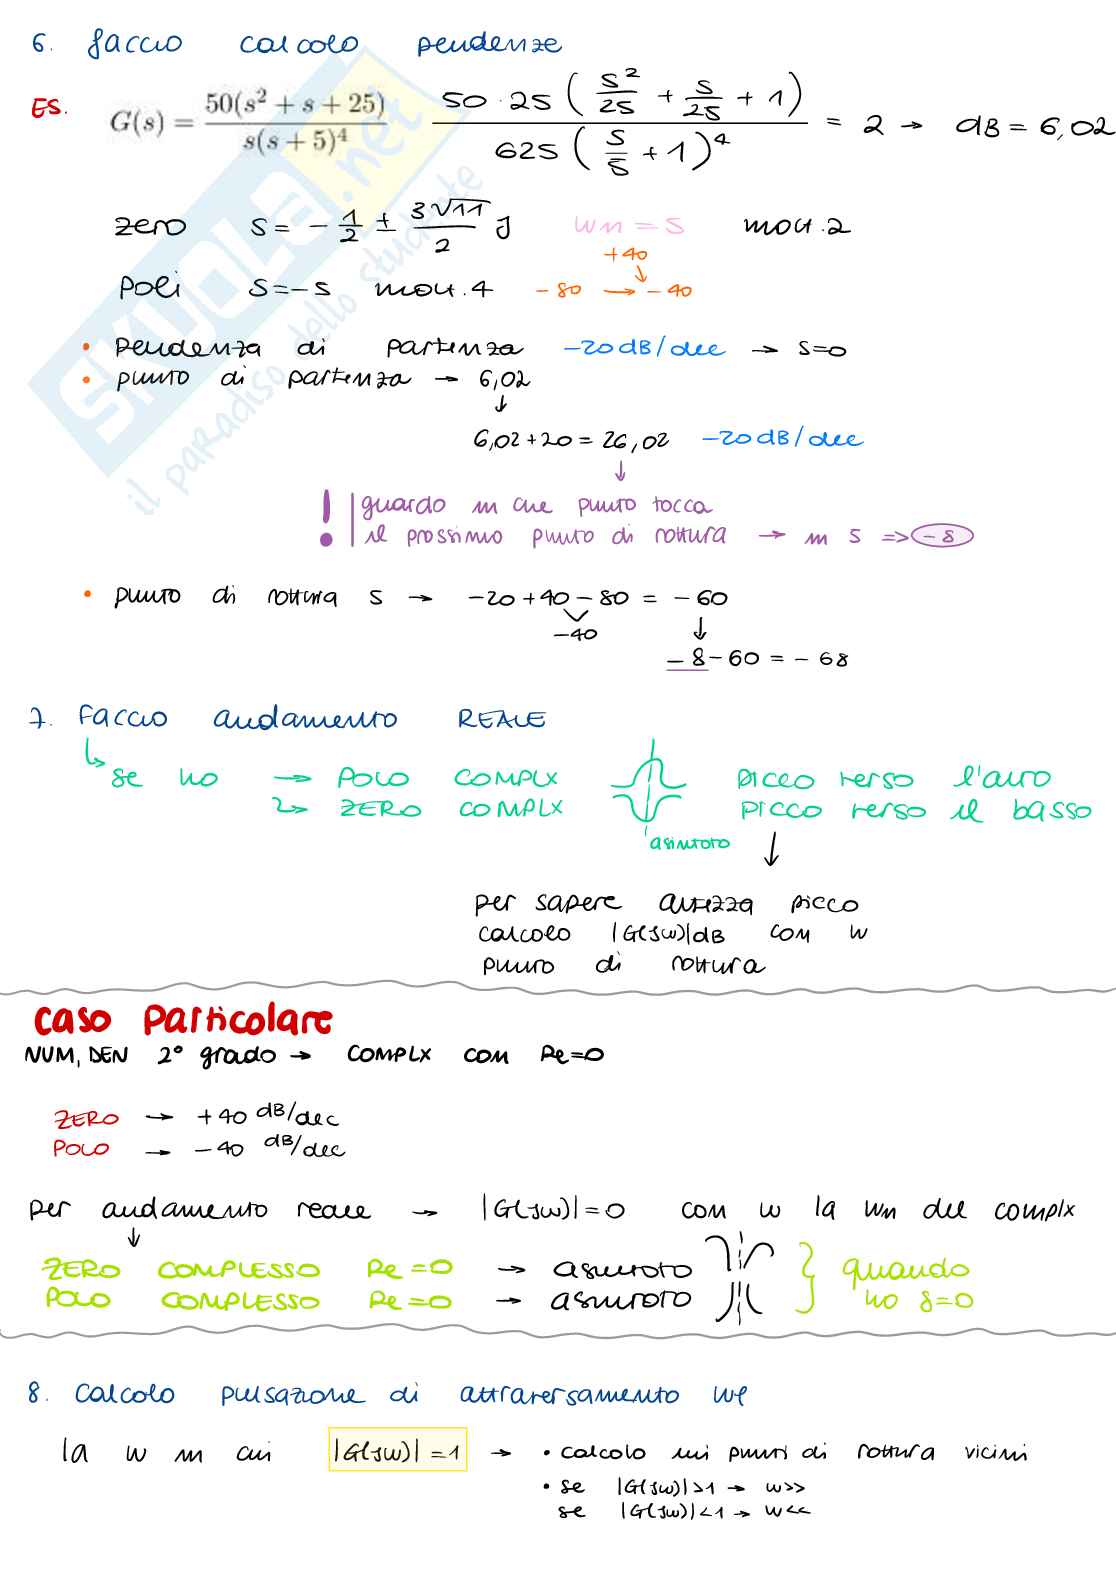 6. faccio calcolo pendenze
ES. G(s) = 50(s² + s + 25) / s(s + 5)⁴   50·25 ( s²/25 + s/25 + 1 ) / 625 ( s/5 + 1 )⁴ = 2 → dB = 6,02
zero s = - 1/2 ± 3√11/2 j   wn = 5   molt.2
+40
↓
poli s=-5 molt.4   -80 → -40
• pendenza di partenza -20dB/dec → s=0
• punto di partenza → 6,02
↓
6,02+20 = 26,02 -20dB/dec
↓
! guardo in che punto tocca
il prossimo punto di rottura → in 5 => -8
• punto di rottura 5 → -20+40-80 = -60
-40 ↓
-8-60 = -68
7. Faccio andamento REALE
↳ se ho → POLO COMPLX picco verso l'alto
↳ ZERO COMPLX picco verso il basso
asintoto ↓
per sapere altezza picco
calcolo |G(jw)|dB con w
punto di rottura
caso Particolare
NUM, DEN 2° grado → COMPLX con Re=0
ZERO → +40 dB/dec
POLO → -40 dB/dec
per andamento reale → |G(jw)|=0 con w la wn del complx
↓
ZERO COMPLESSO Re=0 → asintoto } quando
POLO COMPLESSO Re=0 → asintoto } ho δ=0
8. Calcolo pulsazione di attraversamento wf
la w in cui |G(jw)|=1 → • calcolo nei punti di rottura vicini
• se |G(jw)|>1 → w>>
se |G(jw)|<1 → w<<
SKUOLA.net
il paradiso dello studente